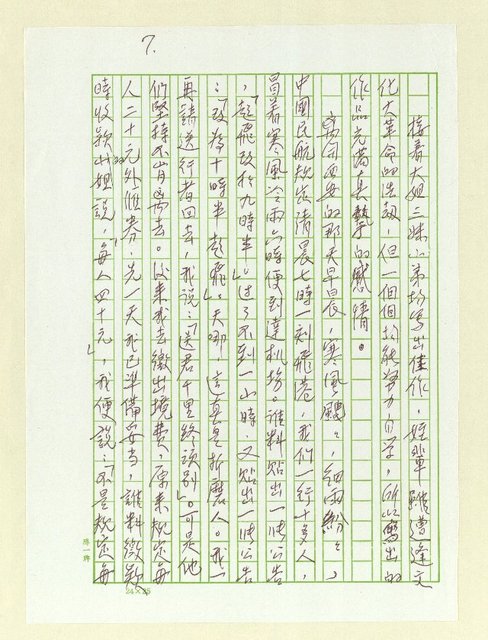 7.
接着大姐三妹小弟均寫出佳作，姪輩雖遭逢文
化大革命的浩劫，但一個個均能努力自学，所以寫出的
作品充滿真摯的感情。
離開西安的那天早晨，寒風颼々，細雨紛々，
中國民航欵定清晨七時一刻飛港，我們一行十多人，
冒着寒風冷雨六時便到達机塲。誰料貼出一張公告
，「起飛改於九時半」。过了不到一小時，又貼出一張公告
：「改為十時半起飛」。天哪，这真是折磨人。我一
再請送行者回去，我説：「送君千里終須別」。可是他
們堅持不肯离去。後來我去繳出境費，原來規定每
人二十元外滙券，先一天我已準備妥当，誰料繳欵
時收欵小姐説，「每人四十元」，我便説：「不是規定每
陈一辉
24×25